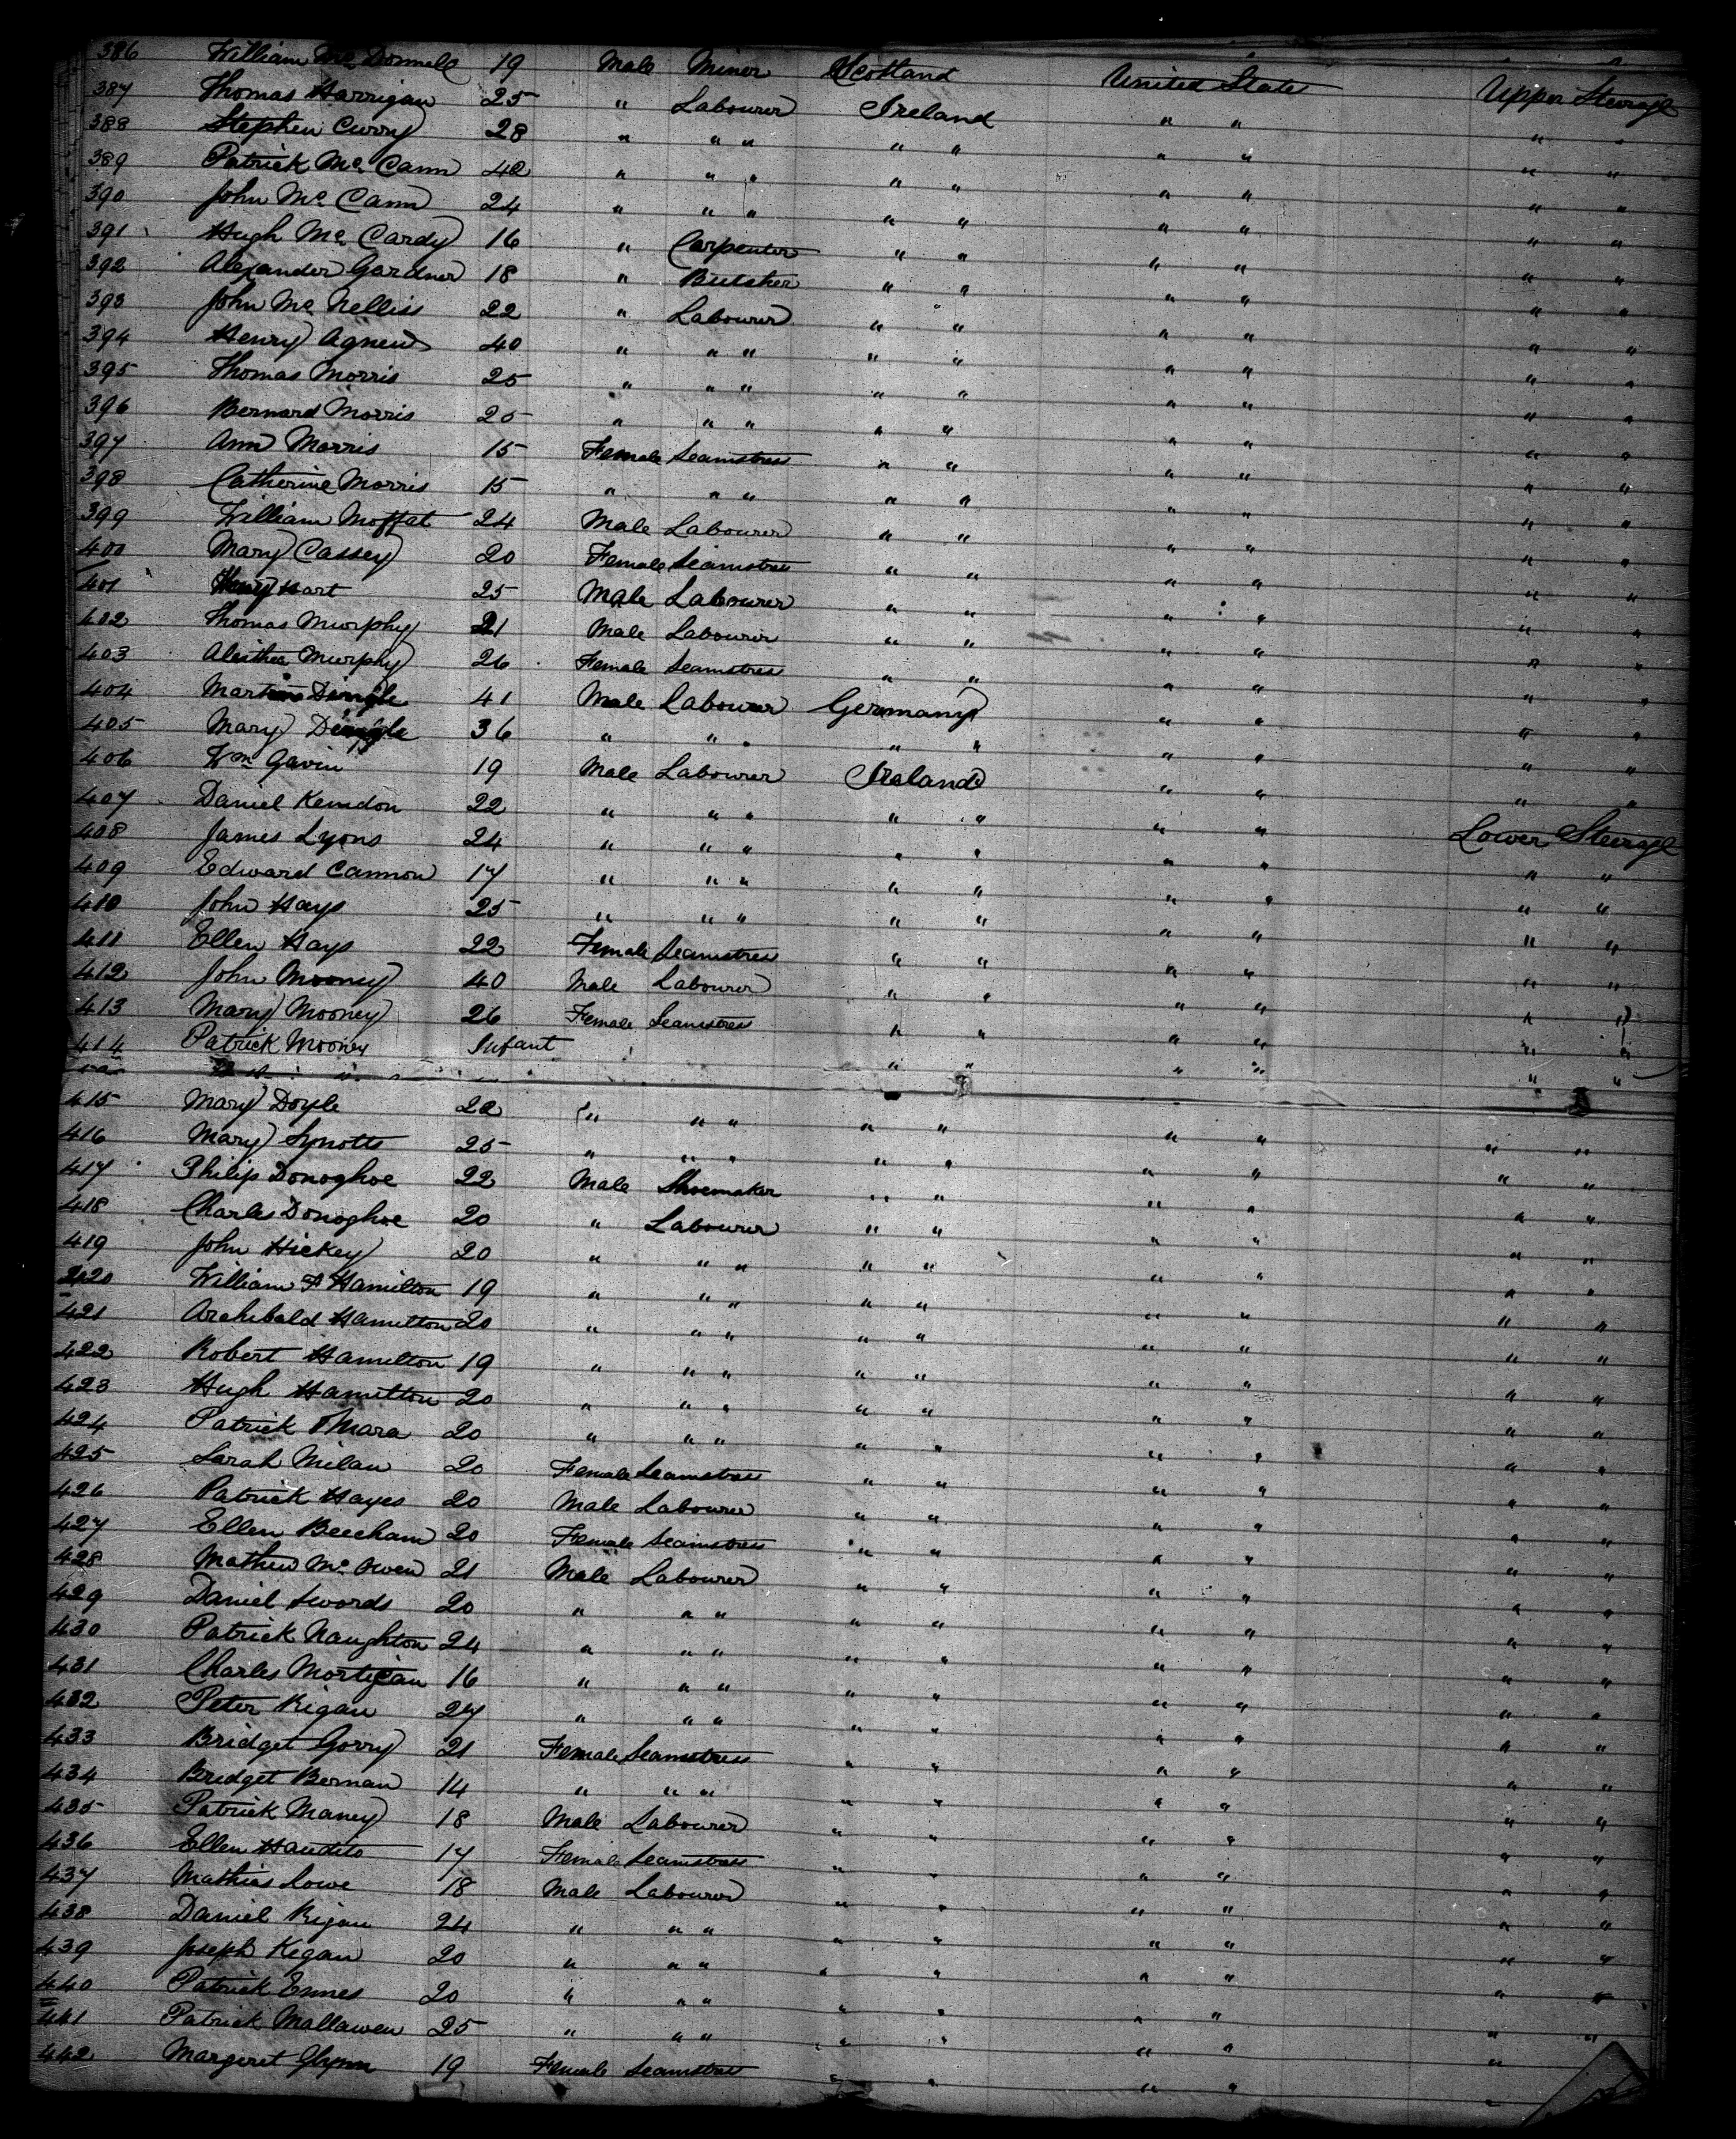 386 William Mc Donnell 19 Male Miner Scotland United States Upper Steerage
387 Thomas Harrigan 25 " Labourer Ireland " " " "
388 Stephen Curry 28 " " " " " " " " "
389 Patrick Mc Cann 40 " " " " " " " " "
390 John Mc Cann 24 " " " " " " " " "
391 Hugh Mc Cardy 16 " Carpenter " " " " " "
392 Alexander Gardner 18 " Butcher " " " " " "
393 John Mc Nelliss 22 " Labourer " " " " " "
394 Henry Agnew 40 " " " " " " " " "
395 Thomas Morris 25 " " " " " " " " "
396 Bernard Morris 25 " " " " " " " " "
397 Ann Morris 15 Female Seamstress " " " " " "
398 Catherine Morris 15 " " " " " " " " "
399 William Moffat 24 Male Labourer " " " " " "
400 Mary Cassey 20 Female Seamstress " " " " " "
401 Henry Hart 25 Male Labourer " " " " " "
402 Thomas Murphy 21 Male Labourer " " " " " "
403 Alesthea Murphy 26 Female Seamstress " " " " " "
404 Martin Dingle 41 Male Labourer Germany " " " "
405 Mary Dingle 36 " " " " " " " " "
406 Wm Gavin 19 Male Labourer Ireland " " " "
407 Daniel Kemdon 22 " " " " " " " Lower Steerage
408 James Lyons 24 " " " " " " " " "
409 Edward Cannon 17 " " " " " " " " "
410 John Hays 25 " " " " " " " " "
411 Ellen Hays 22 Female Seamstress " " " " " "
412 John Mooney 40 Male Labourer " " " " " "
413 Mary Mooney 26 Female Seamstress " " " " " "
414 Patrick Mooney Infant " " " " " "
415 Mary Doyle 22 " " " " " " " " "
416 Mary Synotts 25 " " " " " " " " "
417 Philip Donoghoe 22 Male Shoemaker " " " " " "
418 Charles Donoghoe 20 " Labourer " " " " " "
419 John Hickey 20 " " " " " " " " "
420 William F Hamilton 19 " " " " " " " " "
421 Archibald Hamilton 20 " " " " " " " " "
422 Robert Hamilton 19 " " " " " " " " "
423 Hugh Hamilton 20 " " " " " " " " "
424 Patrick OMara 20 " " " " " " " " "
425 Sarah Milan 20 Female Seamstress " " " " " "
426 Patrick Hayes 20 Male Labourer " " " " " "
427 Ellen Beecham 20 Female Seamstress " " " " " "
428 Mathew Mc Owen 21 Male Labourer " " " " " "
429 Daniel Swords 20 " " " " " " " " "
430 Patrick Naughton 24 " " " " " " " " "
431 Charles Mortigan 16 " " " " " " " " "
432 Peter Rigan 27 " " " " " " " " "
433 Bridget Gorry 21 Female Seamstress " " " " " "
434 Bridget Bernan 14 " " " " " " " " "
435 Patrick Maney 18 Male Labourer " " " " " "
436 Ellen 17 Female Seamstress " " " " " "
437 Mathias Lowe 18 Male Labourer " " " " " "
438 Daniel Rigan 24 " " " " " " " " "
439 Joseph Kegan 20 " " " " " " " " "
440 Patrick Ennes 20 " " " " " " " " "
441 Patrick Mallawen 25 " " " " " " " " "
442 Margeret Glynn 19 Female Seamstress " " " " "